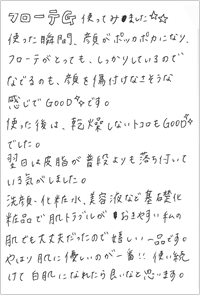 フローテG 使ってみました☆☆
使った瞬間、顔がポッカポカになり、
フローテがとっても、しっかりしているので
なでるのも、顔を傷付けなさそうな
感じでGOODです。
使った後は、乾燥しないトコロもGOOD
でした。
翌日は皮脂が普段よりも落ち付いて
いる気がしました。
洗顔・化粧水、美容液など基礎化
粧品で肌トラブルがおきやすい私の
肌でも大丈夫だったので嬉しい一品です。
やはり肌に優しいのが一番!! 使い続
けて白肌になれたら良いなと思います。